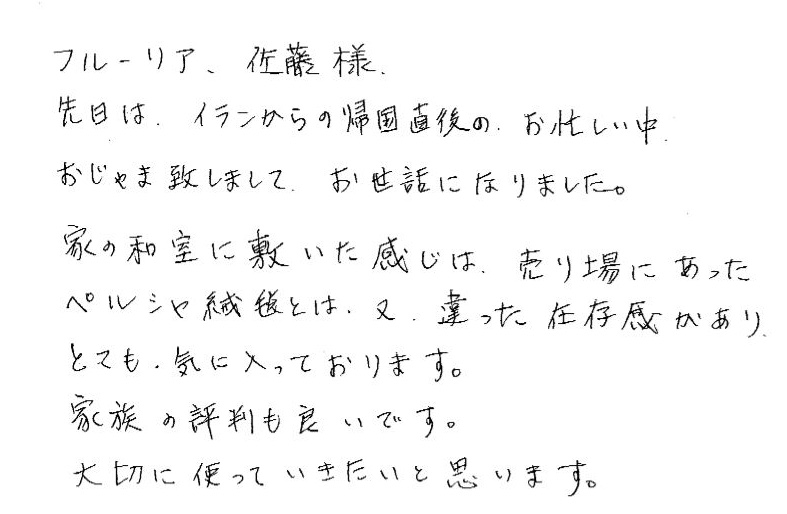 フルーリア、佐藤様.
先日は、イランからの帰国直後の、お忙しい中、
おじゃま致しまして、お世話になりました。
家の和室に敷いた感じは、売り場にあった
ペルシャ絨毯とは、又、違った存在感があり、
とても、気に入っております。
家族の評判も良いです。
大切に使っていきたいと思います。